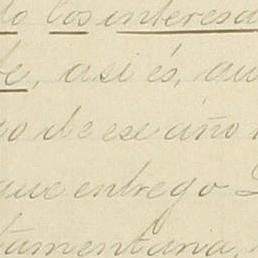 do los interesa
te, asi és, qu
o de ese año
que entrego
tamentaria,